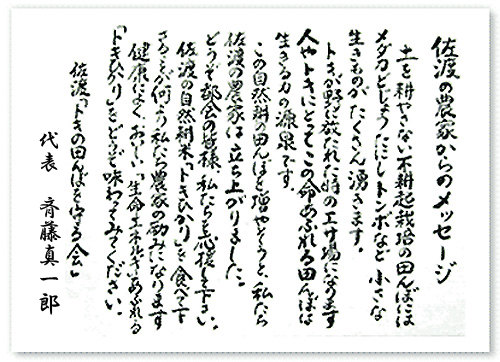 佐渡の農家からのメッセージ
土を耕やさない不耕起栽培の田んぼには
メダカどじょうたにしトンボなど小さな
生きものがたくさん湧きます。
トキが野に放たれた時のエサ場になります
人やトキにとってこの命あふれる田んぼは
生きる力の源泉です。
この自然耕の田んぼを増やそうと、私たち
佐渡の農家は立ち上がりました。
どうぞ都会の皆様、私たちを応援して下さい。
佐渡の自然耕米「トキひかり」を食べて下
さることが何より私たち農家の励みになります
健康によく、おいしい「生命エネルギーあふれる
「トキひかり」をどうぞ味わってみてください。
佐渡「トキの田んぼを守る会」
代表 斉藤真一郎